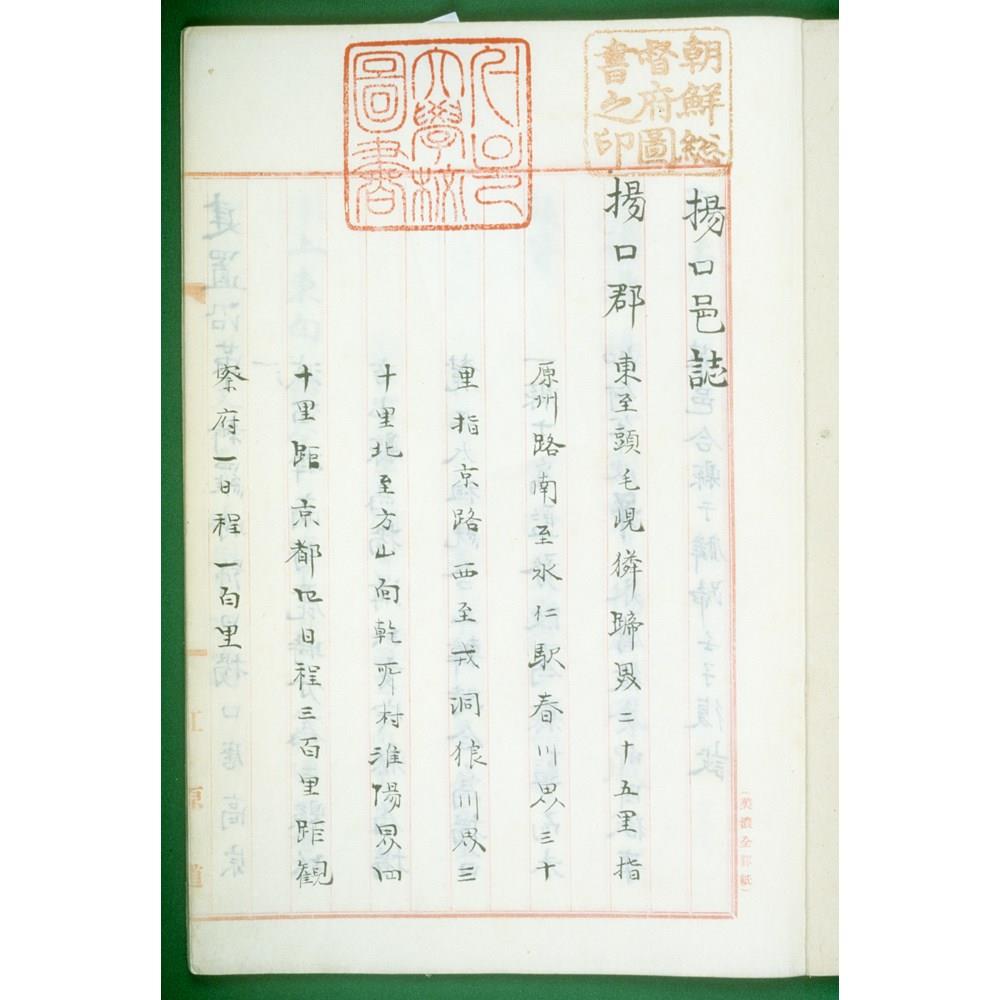 朝鮮総
督府圖
書之印
大學校
圖書
揚口邑誌
揚口郡
東至頭毛峴獜蹄界二十五里指
原州路南至水仁駅春川界三十
里指京路西至戎洞狼川界三
十里北至方山面乾所村淮陽界四
十里距京都四日程三百里距観
察府一日程一百里